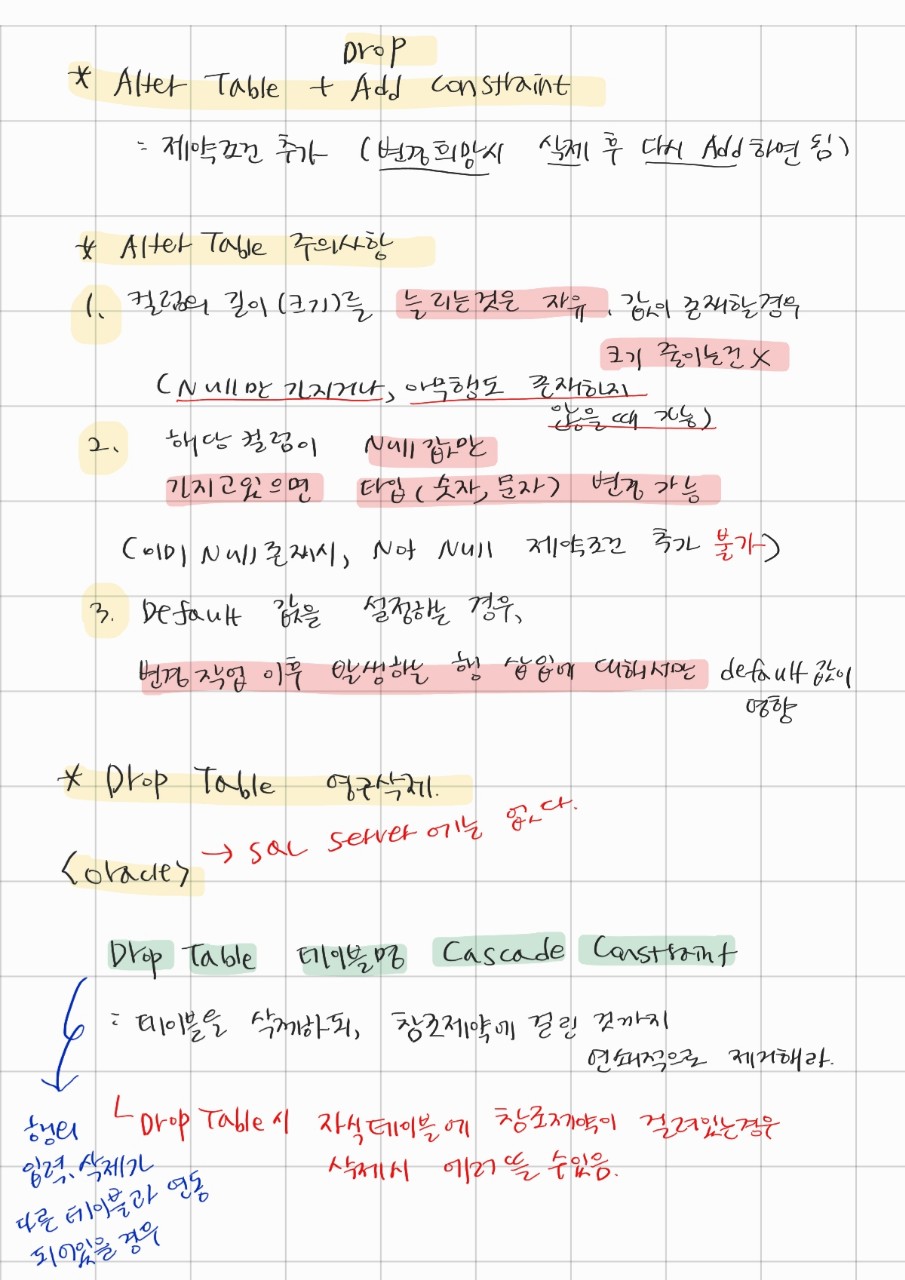 Drop
* Alter Table + Add Constraint
: 제약조건 추가 (변경희망시 삭제 후 다시 Add하면 됨)
* Alter Table 주의사항
1. 컬럼의 길이(크기)를 늘리는것은 자유, 값이 존재할경우
크기 줄이는건 X
(Null만 가지거나, 아무행도 존재하지
않을때 가능)
2. 해당 컬럼이 Null값만
가지고있으면 타입(숫자,문자) 변경 가능
(이미 Null존재시, Not Null 제약조건 추가 불가)
3. Default 값을 설정하는 경우,
변경 작업 이후 발생하는 행 삽입에 대해서만 default값이
영향
* Drop Table 영구삭제.
→ SQL Server에는 없다.
<Oracle>
Drop Table 테이블명 Cascade Constraint
: 테이블을 삭제하되, 참조제약에 걸린 것까지
연쇄적으로 제거해라.
└ Drop Table시 자식테이블에 참조제약이 걸려있는경우
삭제시 에러 뜰 수있음.
행의
입력, 삭제가
다른 테이블과 연동
되어있을 경우